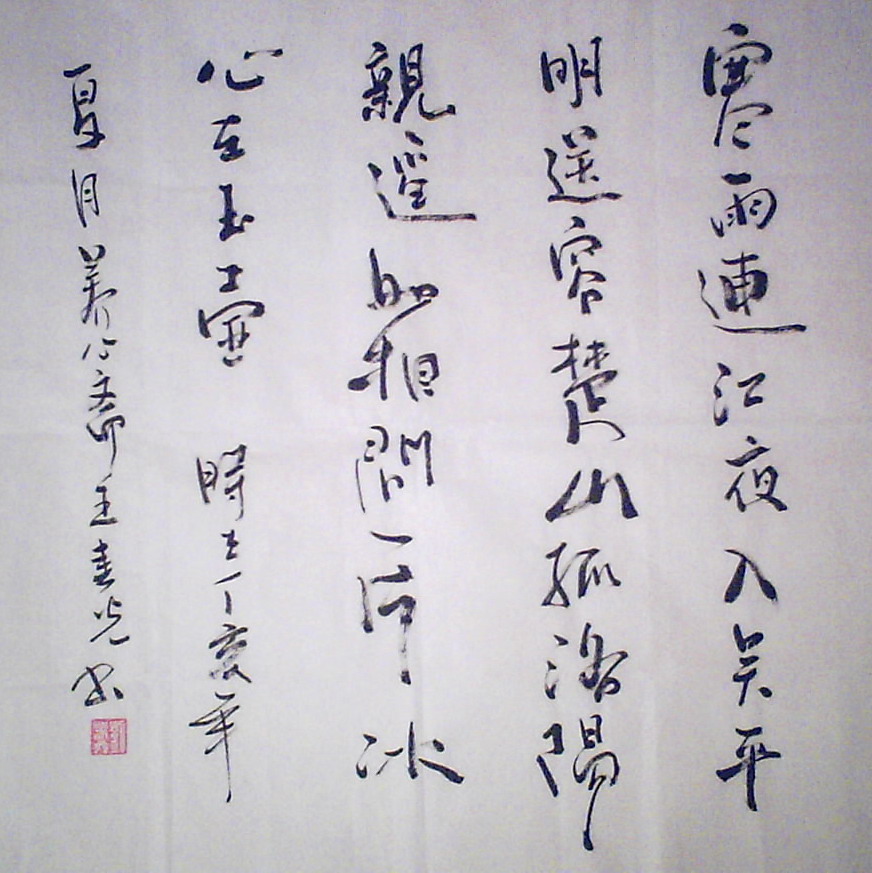 寒雨連江夜入吴平
明送客楚山孤洛陽
親如相問一片冰
心在玉壺 時在丁亥年
夏月养心齋王春光书